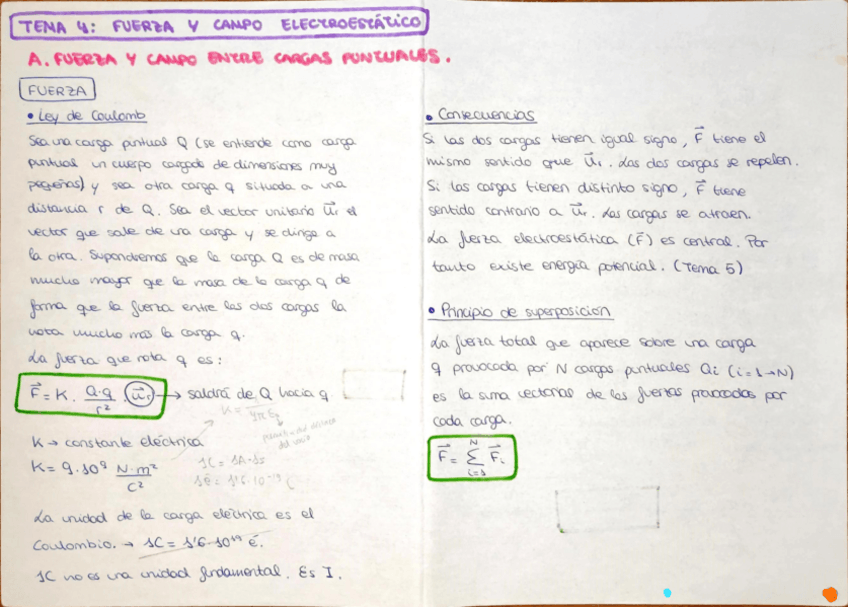 TEMA 4: FUERZA Y CAMPO ELECTROESTÁTICO
A. FUERZA Y CAMPO ENTRE CARGAS PUNTUALES.
FUERZA
• Ley de Coulomb
Sea una carga puntual Q (se entiende como carga
puntual un cuerpo cargado de dimensiones muy
pequeñas) y sea otra carga q situada a una
distancia r de Q. Sea el vector unitario u⃗r el
vector que sale de una carga y se dirige a
la otra. Supondremos que la carga Q es de masa
mucho mayor que la masa de la carga q de
forma que la fuerza entre las dos cargas la
nota mucho más la carga q.
La fuerza que nota q es:
F⃗ = K · Q·q / r² · u⃗r → saldrá de Q hacia q.
K = 1 / 4πε₀
K → constante eléctrica
K = 9·10⁹ N·m² / C²
1C = 1A·1s
1ē = 1'6·10⁻¹⁹ C
La unidad de la carga eléctrica es el
Coulombio. → 1C = 1'6·10¹⁹ ē.
1C no es una unidad fundamental. Es I.
• Consecuencias
Si las dos cargas tienen igual signo, F⃗ tiene el
mismo sentido que u⃗r. Las dos cargas se repelen.
Si las cargas tienen distinto signo, F⃗ tiene
sentido contrario a u⃗r. Las cargas se atraen.
La fuerza electroestática (F⃗) es central. Por
tanto existe energía potencial. (Tema 5)
• Principio de superposición
La fuerza total que aparece sobre una carga
q provocada por N cargas puntuales Qi (i=1→N)
es la suma vectorial de las fuerzas provocadas por
cada carga.
F⃗ = Σ N i=1 F⃗i